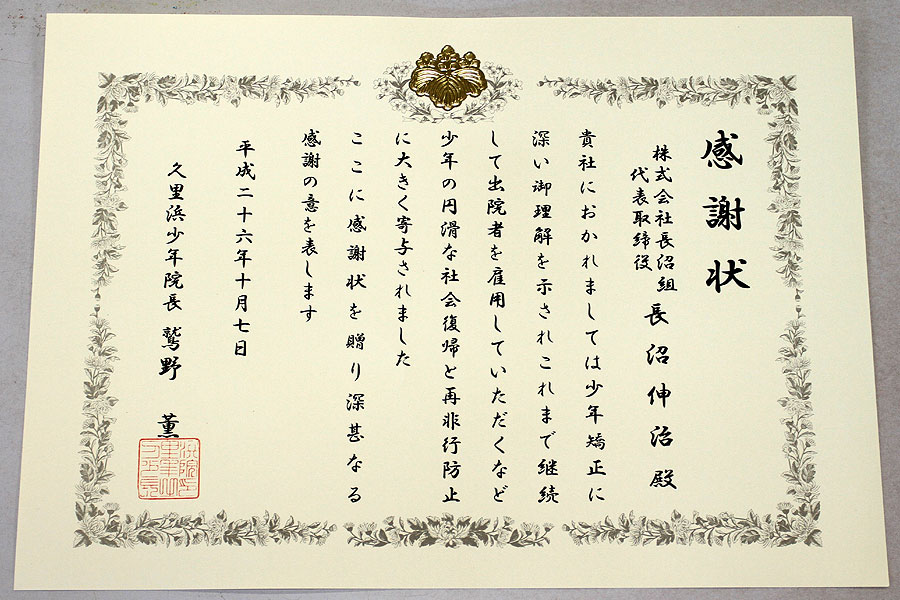 感謝状
株式会社長沼組
代表取締役
長沼伸治殿
貴社におかれましては少年矯正に
深い御理解を示されこれまで継続
して出院者を雇用していただくなど
少年の円滑な社会復帰と再非行防止
に大きく寄与されました
ここに感謝状を贈り深甚なる
感謝の意を表します
平成二十六年十月七日
久里浜少年院長 鷲野 薫